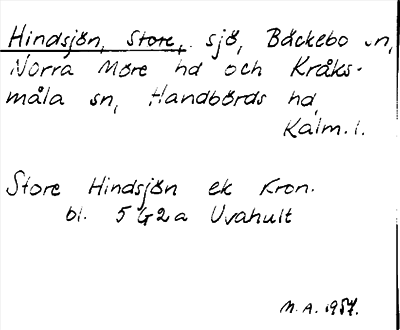 Hindsjön, Store, sjö, Bäckebo sn,
Norra Möre hd och Kråks-
måla sn, Handbörds hd,
Kalm. l.
Store Hindsjön ek Kron.
bl. 5 G 2 a Uvahult
M. A. 1957.